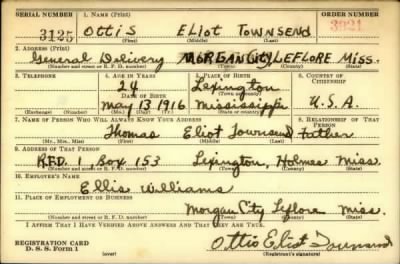 SERIAL NUMBER 1. NAME (Print) ORDER NUMBER
3125 Ottis Eliot Townsend 3921
(First) (Middle) (Last)
2. ADDRESS (Print)
General Delivery MORGAN City LEFLORE Miss.
(Number and street or R. F. D. number) (Town) (County) (State)
3. TELEPHONE 4. AGE IN YEARS 5. PLACE OF BIRTH 6. COUNTRY OF CITIZENSHIP
24 Lexington
DATE OF BIRTH (Town or county)
May 13 1916 Mississippi U.S.A.
(Exchange) (Number) (Mo.) (Day) (Yr.) (State or country)
7. NAME OF PERSON WHO WILL ALWAYS KNOW YOUR ADDRESS 8. RELATIONSHIP OF THAT PERSON
Thomas Eliot Townsend Father
(Mr., Mrs., Miss) (First) (Middle) (Last)
9. ADDRESS OF THAT PERSON
R.F.D. 1, Box 153 Lexington, Holmes Miss.
(Number and street or R. F. D. number) (Town) (County) (State)
10. EMPLOYER'S NAME
Ellis Williams
11. PLACE OF EMPLOYMENT OR BUSINESS
Morgan City Leflore Miss.
(Number and street or R. F. D. number) (Town) (County) (State)
I AFFIRM THAT I HAVE VERIFIED ABOVE ANSWERS AND THAT THEY ARE TRUE.
REGISTRATION CARD
D. S. S. Form 1 (over) Ottis Eliot Townsend
(Registrant's signature)